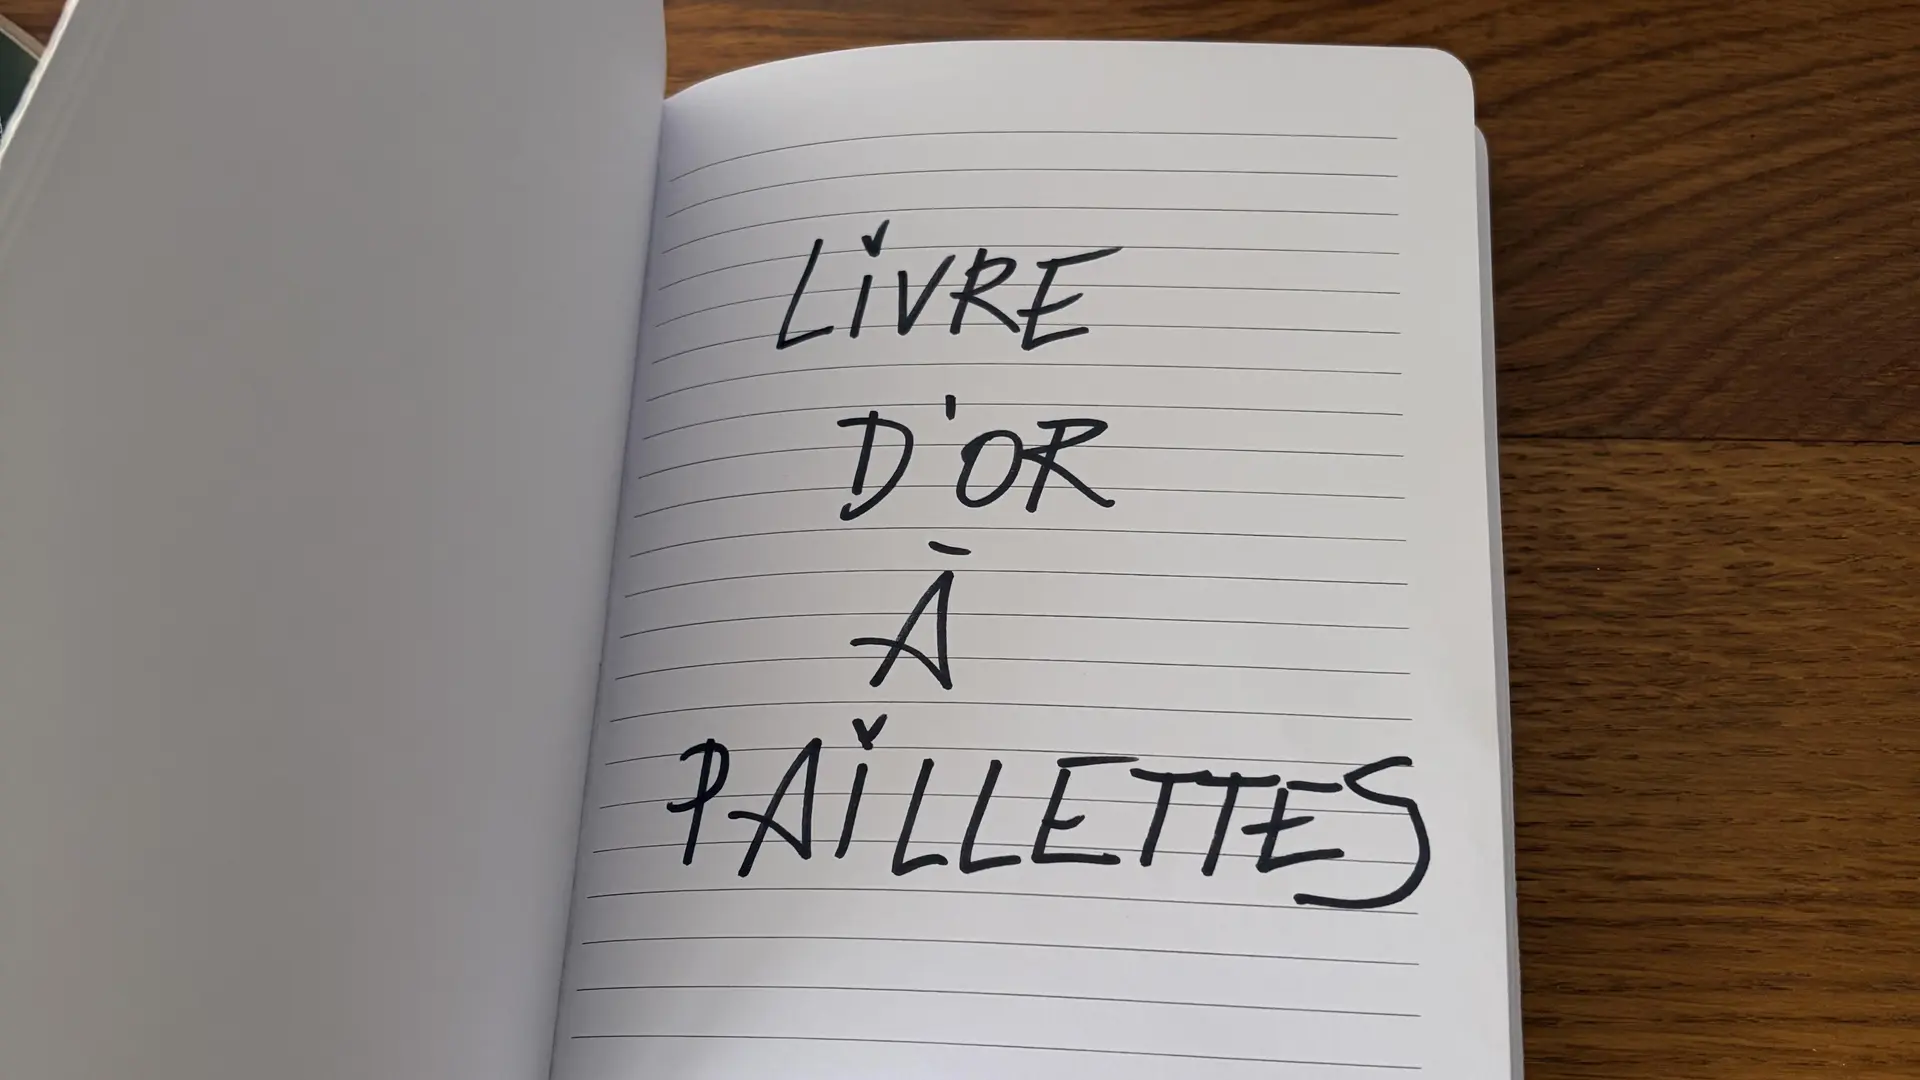 LiVRE
D'OR
À
PAiLLETTES